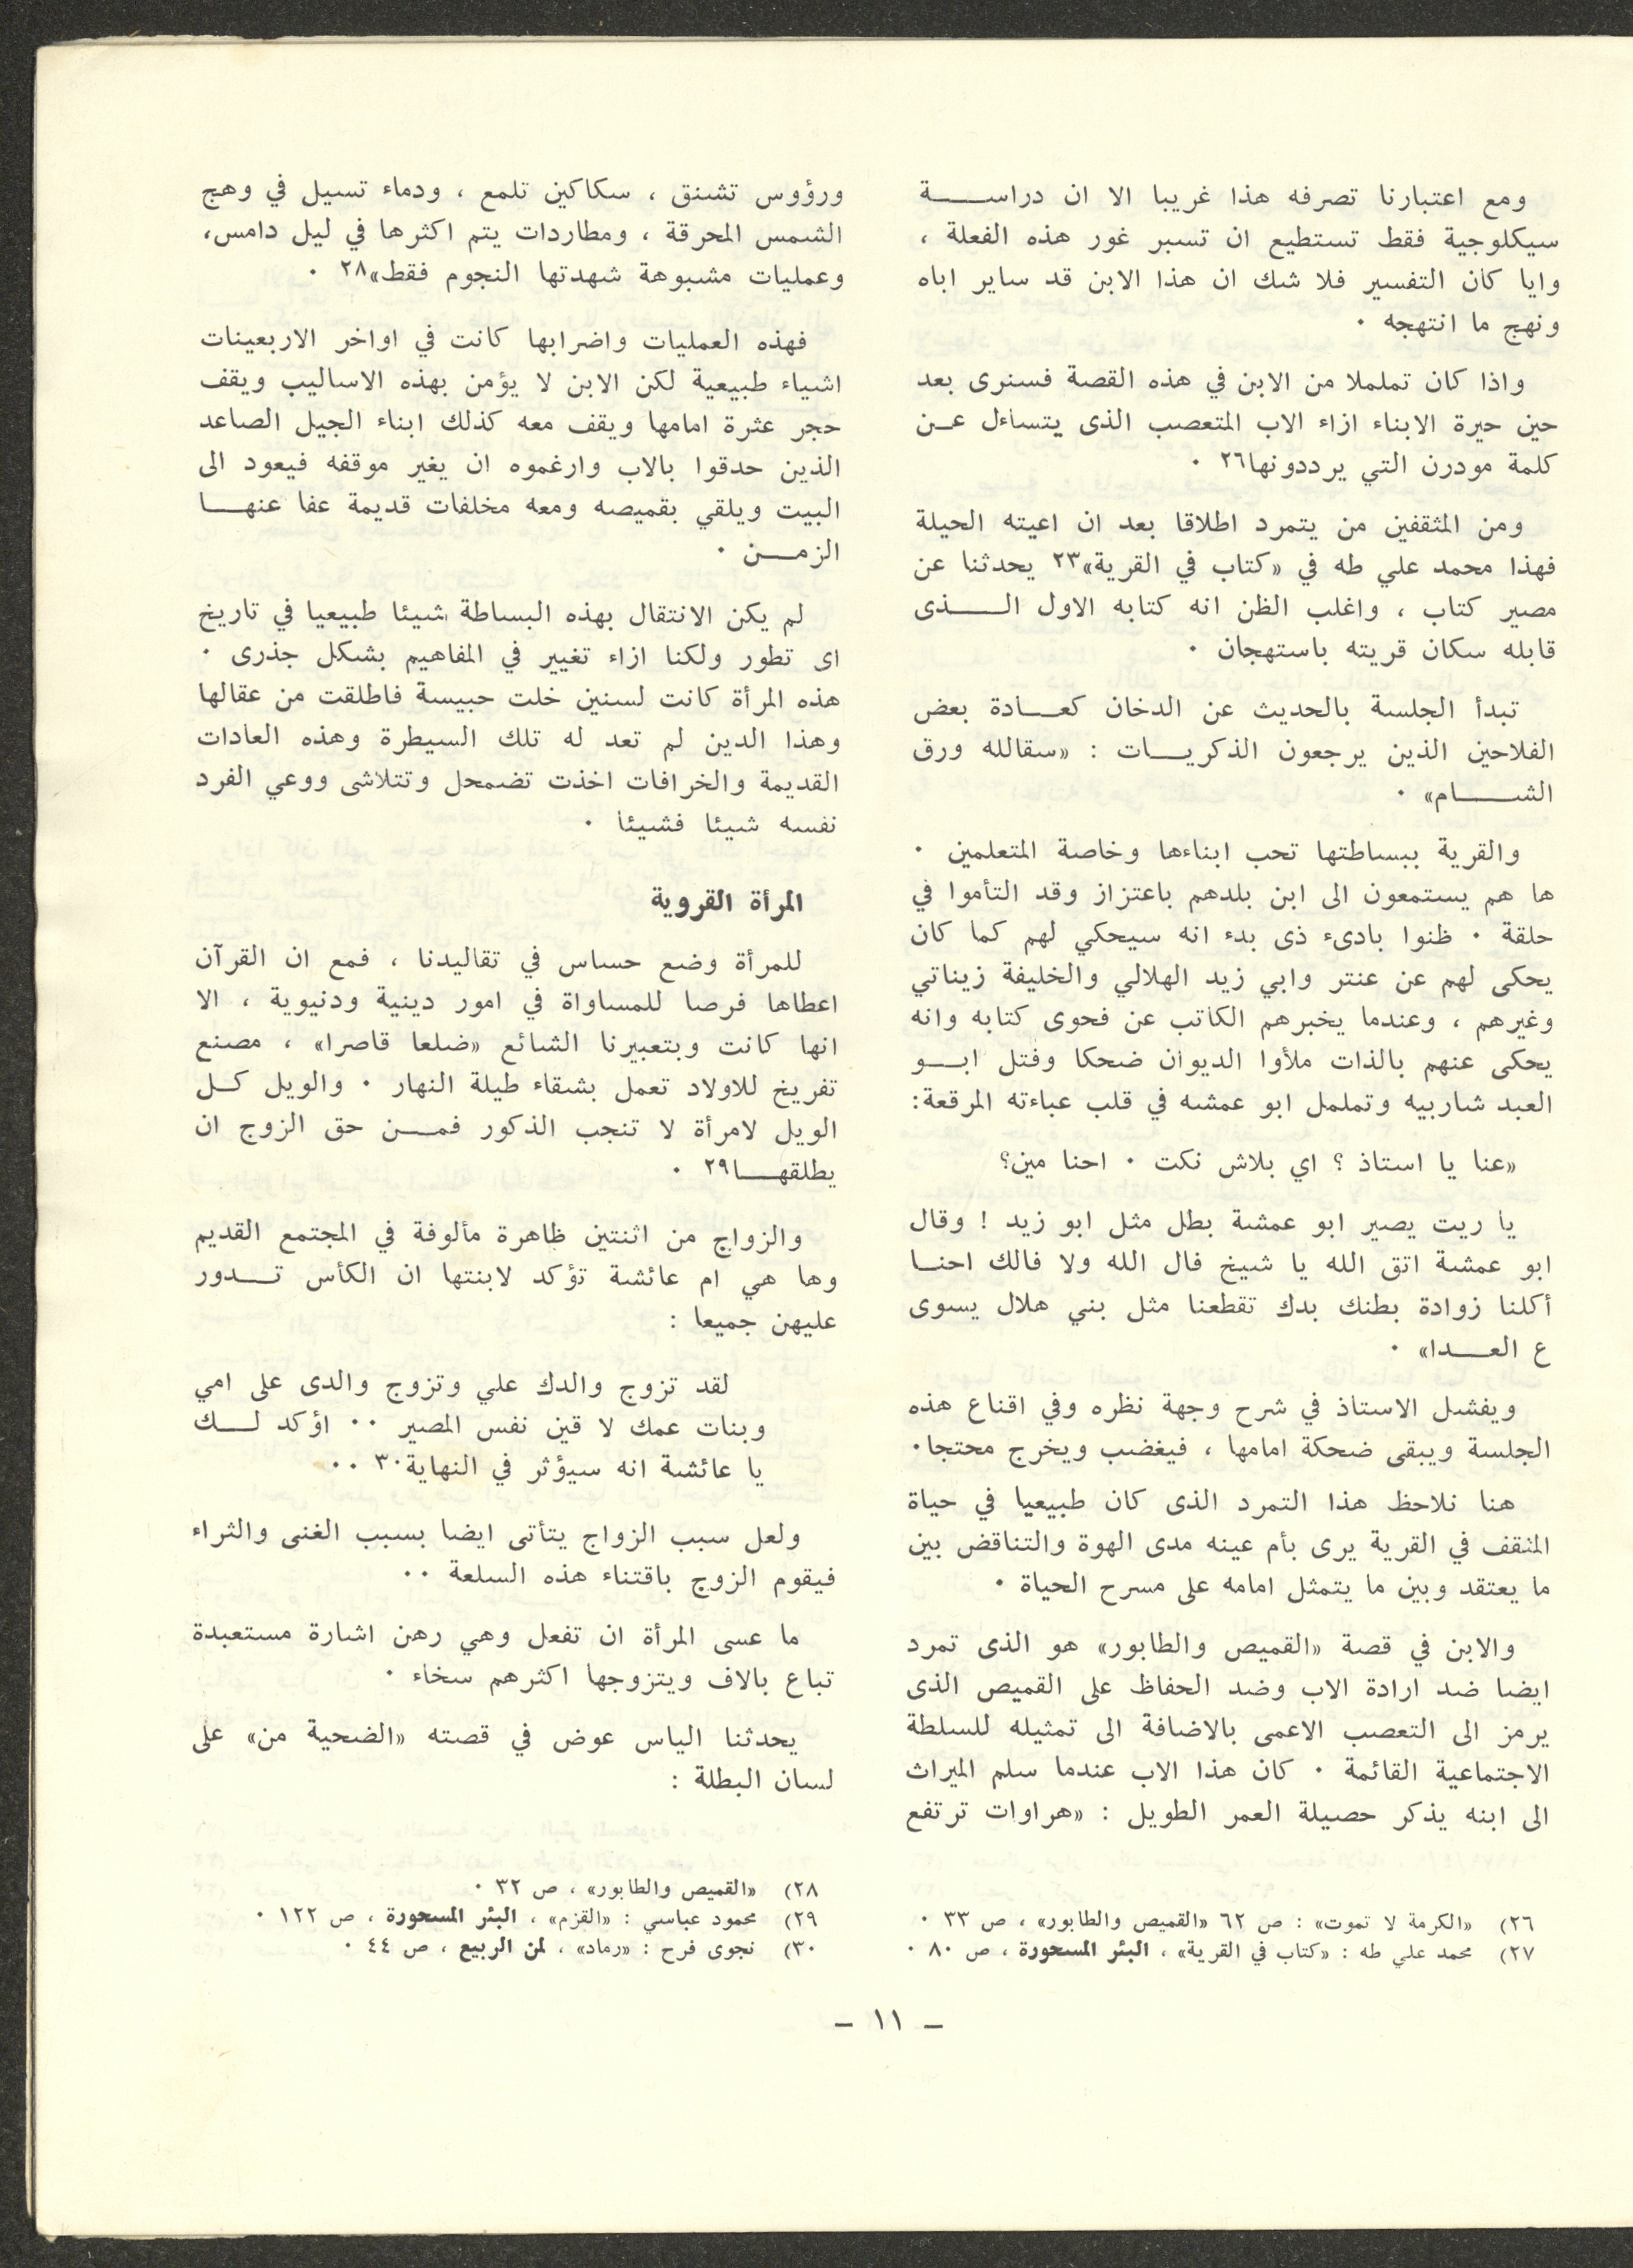 ومع اعتبارنا تصرفه هذا غريبا الا ان دراسة
سيكلوجية فقط تستطيع ان تسبر غور هذه الفعلة ،
وايا كان التفسير فلا شك ان هذا الابن قد ساير اباه
ونهج ما انتهجه ٠
واذا كان تململا من الابن في هذه القصة فسنرى بعد
حين حيرة الابناء ازاء الاب المتعصب الذى يتساءل عن
كلمة مودرن التي يرددونها٢٦ ٠
ومن المثقفين من يتمرد اطلاقا بعد ان اعيته الحيلة
فهذا محمد علي طه في «كتاب في القرية»٢٣ يحدثنا عن
مصير كتاب ، واغلب الظن انه كتابه الاول الذى
قابله سكان قريته باستهجان ٠
تبدأ الجلسة بالحديث عن الدخان كعادة بعض
الفلاحين الذين يرجعون الذكريات : «سقالله ورق
الشام» ٠
والقرية ببساطتها تحب ابناءها وخاصة المتعلمين ٠
ها هم يستمعون الى ابن بلدهم باعتزاز وقد التأموا في
حلقة ٠ ظنوا بادىء ذى بدء انه سيحكي لهم كما كان
يحكى لهم عن عنتر وابي زيد الهلالي والخليفة زيناتي
وغيرهم ، وعندما يخبرهم الكاتب عن فحوى كتابه وانه
يحكى عنهم بالذات ملأوا الديوان ضحكا وفتل ابو
العبد شاربيه وتململ ابو عمشه في قلب عباءته المرقعة:
«عنا يا استاذ ؟ اي بلاش نكت ٠ احنا مين؟
يا ريت يصير ابو عمشة بطل مثل ابو زيد ! وقال
ابو عمشة اتق الله يا شيخ فال الله ولا فالك احنا
أكلنا زوادة بطنك بدك تقطعنا مثل بني هلال يسوى
ع العدا» ٠
ويفشل الاستاذ في شرح وجهة نظره وفي اقناع هذه
الجلسة ويبقى ضحكة امامها ، فيغضب ويخرج محتجا٠
هنا نلاحظ هذا التمرد الذى كان طبيعيا في حياة
المثقف في القرية يرى بأم عينه مدى الهوة والتناقض بين
ما يعتقد وبين ما يتمثل امامه على مسرح الحياة ٠
والابن في قصة «القميص والطابور» هو الذى تمرد
ايضا ضد ارادة الاب وضد الحفاظ على القميص الذى
يرمز الى التعصب الاعمى بالاضافة الى تمثيله للسلطة
الاجتماعية القائمة ٠ كان هذا الاب عندما سلم الميراث
الى ابنه يذكر حصيلة العمر الطويل : «هراوات ترتفع
٢٦) «الكرمة لا تموت» : ص ٦٢ «القميص والطابور» ، ص ٣٣ ٠
٢٧) محمد علي طه : «كتاب في القرية» ، البئر المسحورة ، ص ٨٠ ٠
ورؤوس تشنق ، سكاكين تلمع ، ودماء تسيل في وهج
الشمس المحرقة ، ومطاردات يتم اكثرها في ليل دامس،
وعمليات مشبوهة شهدتها النجوم فقط»٢٨ ٠
فهذه العمليات واضرابها كانت في اواخر الاربعينات
اشياء طبيعية لكن الابن لا يؤمن بهذه الاساليب ويقف
حجر عثرة امامها ويقف معه كذلك ابناء الجيل الصاعد
الذين حدقوا بالاب وارغموه ان يغير موقفه فيعود الى
البيت ويلقي بقميصه ومعه مخلفات قديمة عفا عنها
الزمن ٠
لم يكن الانتقال بهذه البساطة شيئا طبيعيا في تاريخ
اى تطور ولكنا ازاء تغيير في المفاهيم بشكل جذرى ٠
هذه المرأة كانت لسنين خلت حبيسة فاطلقت من عقالها
وهذا الدين لم تعد له تلك السيطرة وهذه العادات
القديمة والخرافات اخذت تضمحل وتتلاشى ووعي الفرد
نفسه شيئا فشيئا ٠
المرأة القروية
للمرأة وضع حساس في تقاليدنا ، فمع ان القرآن
اعطاها فرصا للمساواة في امور دينية ودنيوية ، الا
انها كانت وبتعبيرنا الشائع «ضلعا قاصرا» ، مصنع
تفريخ للاولاد تعمل بشقاء طيلة النهار ٠ والويل كل
الويل لامرأة لا تنجب الذكور فمن حق الزوج ان
يطلقها٢٩ ٠
والزواج من اثنتين ظاهرة مألوفة في المجتمع القديم
وها هي ام عائشة تؤكد لابنتها ان الكأس تدور
عليهن جميعا :
لقد تزوج والدك علي وتزوج والدى على امي
وبنات عمك لا قين نفس المصير ٠٠ اؤكد لك
يا عائشة انه سيؤثر في النهاية٣٠ ٠٠
ولعل سبب الزواج يتأتى ايضا بسبب الغنى والثراء
فيقوم الزوج باقتناء هذه السلعة ٠٠
ما عسى المرأة ان تفعل وهي رهن اشارة مستعبدة
تباع بالاف ويتزوجها اكثرهم سخاء ٠
يحدثنا الياس عوض في قصته «الضحية من» على
لسان البطلة :
٢٨) «القميص والطابور» ، ص ٣٢ ٠
٢٩) محمود عباسي : «القزم» ، البئر المسحورة ، ص ١٢٢ ٠
٣٠) نجوى فرح : «رماد» ، لمن الربيع ، ص ٤٤ ٠
– ١١ –